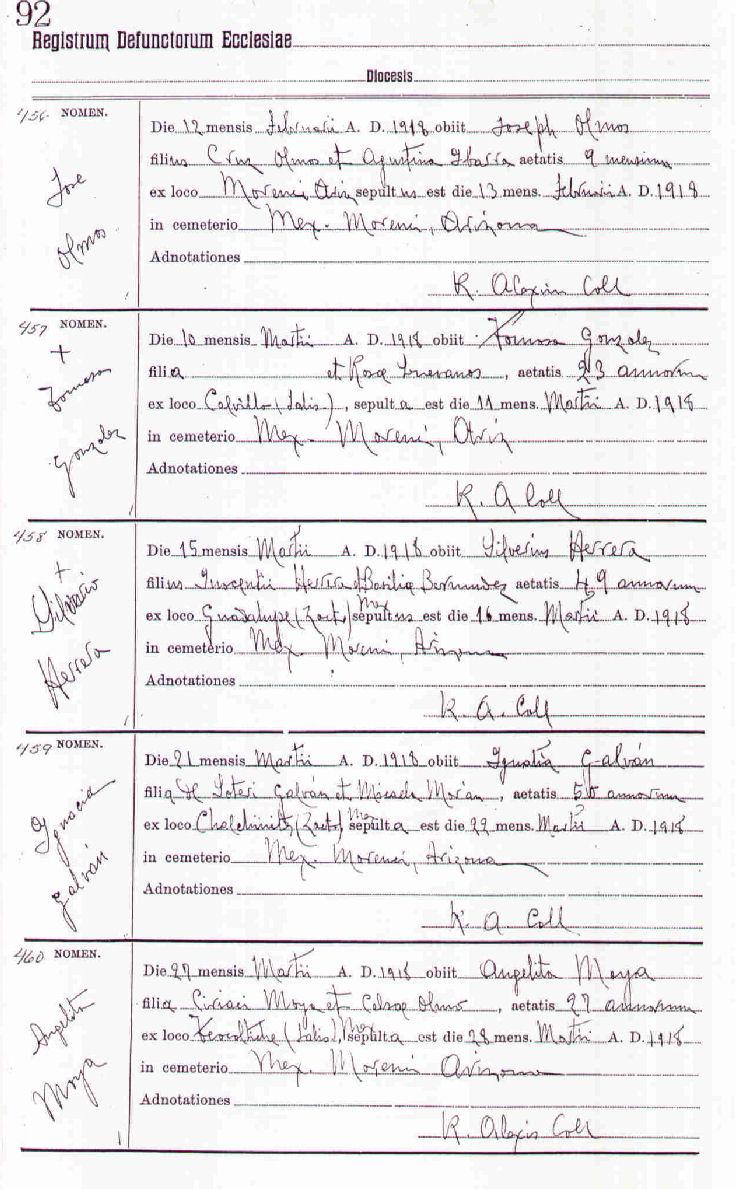 92
Registrum Defunctorum Ecclesiae
Diocesis
456 NOMEN.
Jose
Olmos
Die 12 mensis Februarii A. D. 1918 obiit Joseph Olmos
filius Cruz Olmos et Agustina Ibarra aetatis 9 mensium
ex loco Morenci Ariz sepultus est die 13 mens. Februarii A. D. 1918
in cemeterio Mex. Morenci, Arizona
Adnotationes
R. Alexin Coll
457 NOMEN.
+
Gonzalez
Die 10 mensis Martii A. D. 1918 obiit Gonzalez
filia et Rosa, aetatis 23 annorum
ex loco Calvillo (Jalis.), sepulta est die 11 mens. Martii A. D. 1918
in cemeterio Mex. Morenci, Ariz
Adnotationes
R. A Coll
458 NOMEN.
+
Silverio
Herrera
Die 15 mensis Martii A. D. 1918 obiit Silverius Herrera
filius Inocentii Herrera et Basilia Bermudez aetatis 49 annorum
ex loco Guadalupe (Zact.) Mex sepultus est die 16 mens. Martii A. D. 1918
in cemeterio Mex. Morenci, Arizona
Adnotationes
R. A. Coll
459 NOMEN.
Ignacia
Galván
Die 21 mensis Martii A. D. 1918 obiit Ignatia Galván
filia de Soteri Galván et Micaela Morán, aetatis annorum
ex loco (Zact.) Mex sepulta est die 22 mens. Martii A. D. 1918
in cemeterio Mex. Morenci, Arizona
Adnotationes
R. A Coll
460 NOMEN.
Angelita
Moya
Die 27 mensis Martii A. D. 1918 obiit Angelita Moya
filia Ciriaci Moya et Celsae Olmo, aetatis 27 annorum
ex loco (Jalis.) Mex sepulta est die 28 mens. Martii A. D. 1918
in cemeterio Mex. Morenci Arizona
Adnotationes
R. Alexis Coll